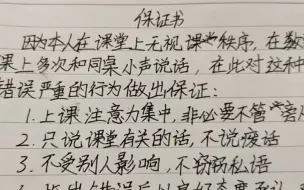 保证书
因为本人在课堂上无视课堂秩序，在数
课上多次和同桌小声说话，在此对这种
错误严重的行为做出保证：
1.上课注意力集中，非必要不管旁
2.只说课堂有关的话，不说废话
3.不受别人影响，不窃窃私语